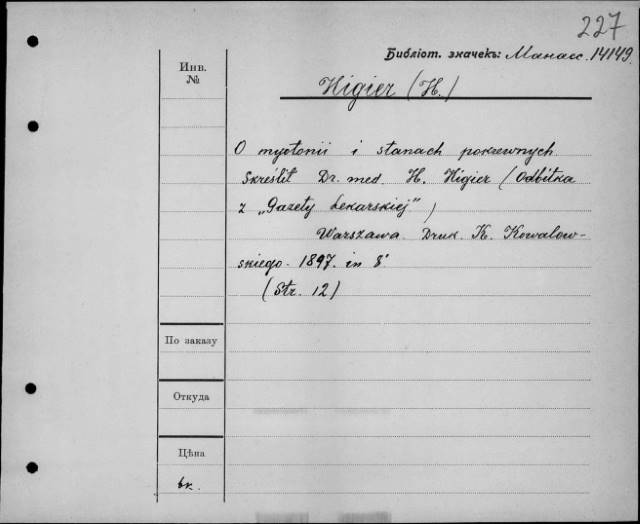 227
Библіот. значекъ: Манасс. 14149.
Инв.
№
Higier (H.)
O myotonii i stanach pokrewnych
skreślił Dr. med. H. Higier (Odbitka
z „Gazety Lekarskiej")
Warszawa. Druk. K. Kowalow-
skiego. 1897. in 8°
(Str. 12)
По заказу
Откуда
Цѣна
бк.